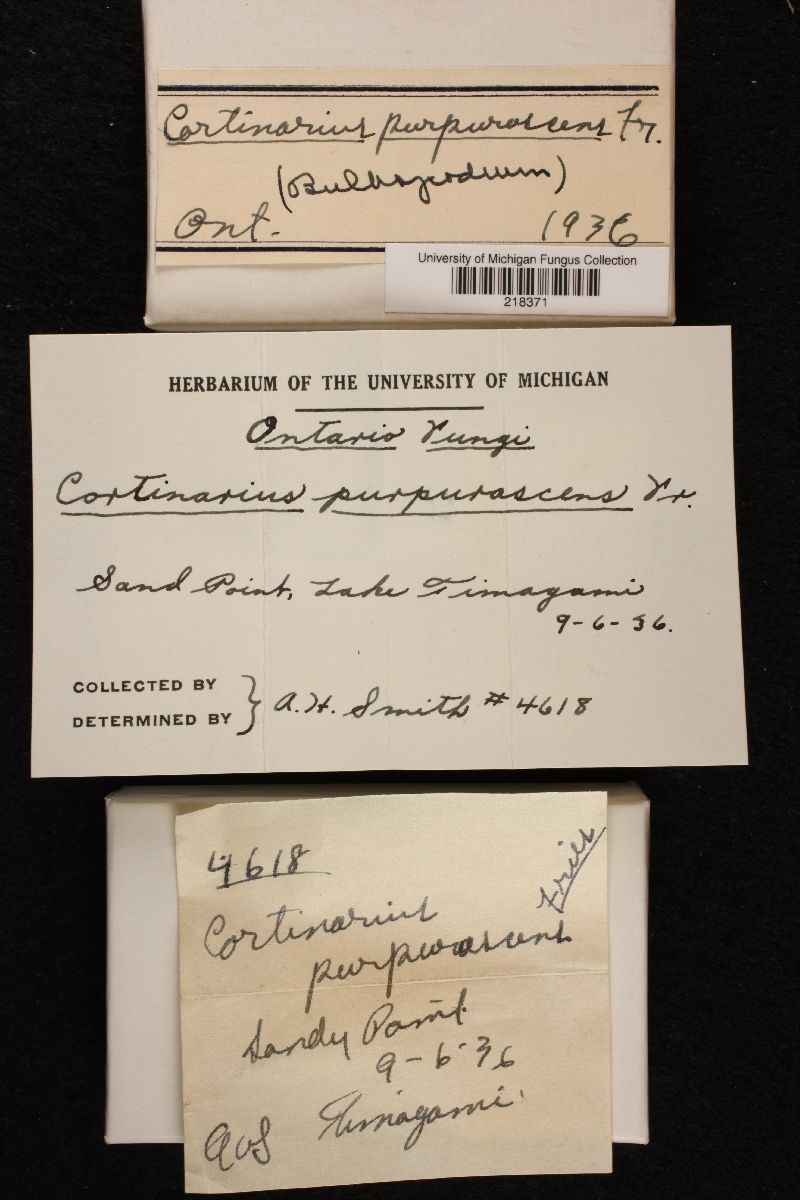 Cortinarius purpurascens Fr.
(Bulbopodium)
Ont. 1936
University of Michigan Fungus Collection
218371
HERBARIUM OF THE UNIVERSITY OF MICHIGAN
Ontario Fungi
Cortinarius purpurascens Fr.
Sand Point, Lake Timagami
9-6-36.
COLLECTED BY
DETERMINED BY } A.H. Smith # 4618
4618
Fries
Cortinarius
purpurascens
Sandy Point
9-6-36
Timagami.